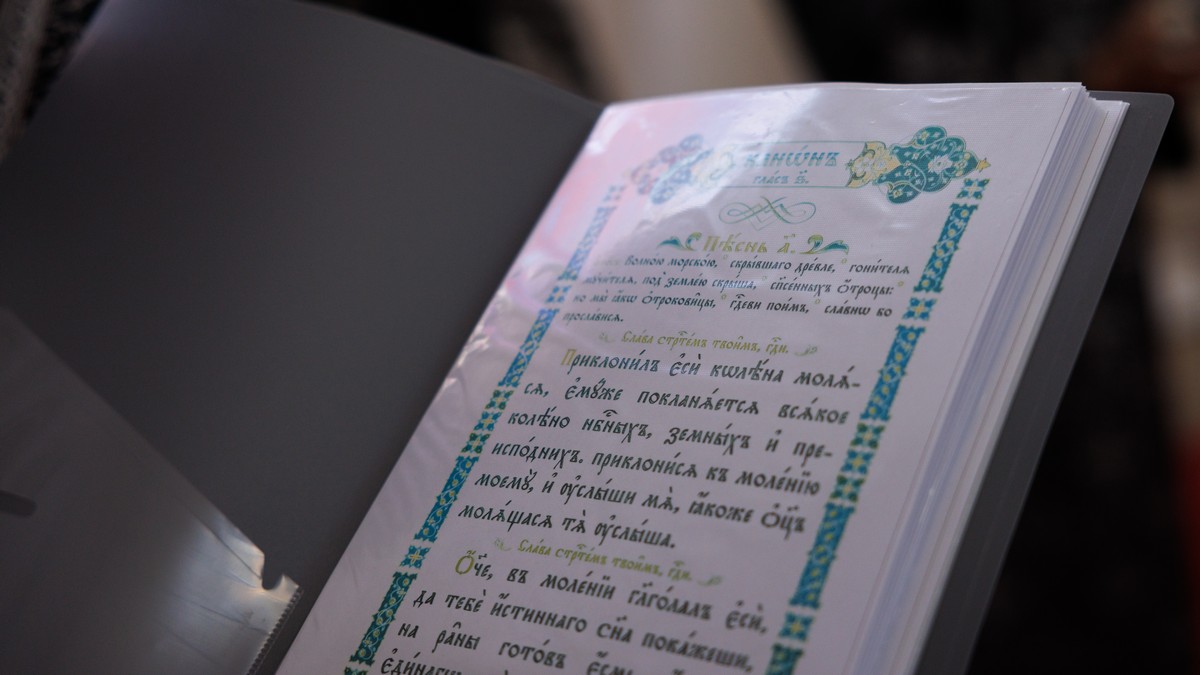 Канѡ́нъ
гла́съ в҃.
Пѣ́снь а҃.
Волно́ю морско́ю, скры́вшаго дре́вле, гони́телѧ
мꙋчи́телѧ, под̾ земле́ю скры́ша, сп҃се́нныхъ ѻ҆́троцы:
но мы̀ ꙗ҆́кѡ ѻ҆трокови̑цы, гд҇еви пои́мъ, сла́внѡ бо
просла́висѧ.
Сла́ва стрⷭ҇те́мъ твои̑мъ, гдⷭ҇и.
Приклони́лъ є҆сѝ кѡлѣ́на молѧ́-
сѧ, є҆мꙋ́же покланѧ́етсѧ всѧ́кое
колѣ́но нбⷭ҇ныхъ, земны́хъ и҆ пре-
испо́днихъ. приклони́сѧ къ моле́нїю
моемꙋ̀, и҆ ᲂу҆слы́ши мѧ̀, ꙗ҆́коже ѻ҆ц҃ъ
молѧ́щасѧ тѧ̀ ᲂу҆слы́ша.
Сла́ва стрⷭ҇те́мъ твои̑мъ, гдⷭ҇и.
Ѻ҆́ч҃е, въ моле́нїи гл҃го́лалъ є҆сѝ,
да тебѐ и҆́стиннаго сн҃а пока́жеши,
на ра̑ны гото́въ